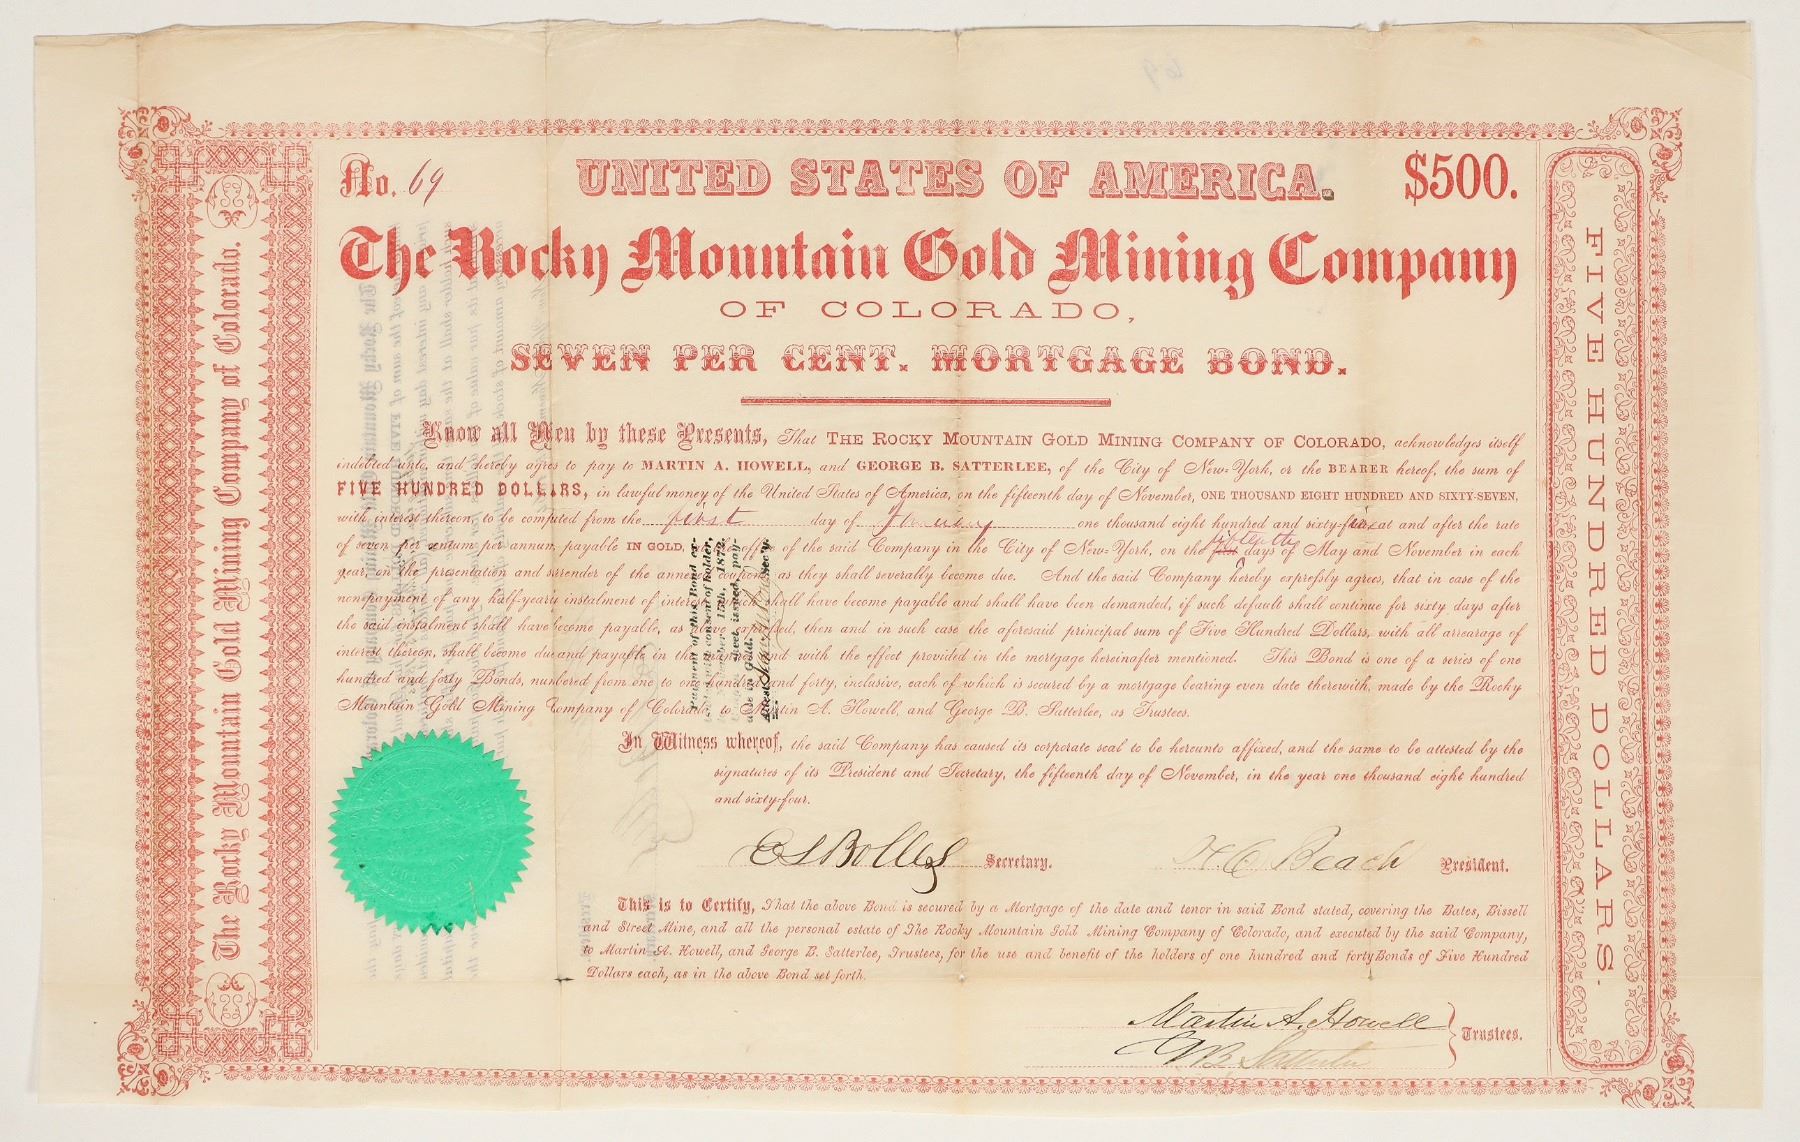 No. 69
UNITED STATES OF AMERICA.
$500.
The Rocky Mountain Gold Mining Company
OF COLORADO,
SEVEN PER CENT. MORTGAGE BOND.
Know all Men by these Presents, That THE ROCKY MOUNTAIN GOLD MINING COMPANY OF COLORADO, acknowledges itself
indebted unto, and hereby agrees to pay to MARTIN A. HOWELL, and GEORGE B. SATTERLEE, of the City of New-York, or the BEARER hereof, the sum of
FIVE HUNDRED DOLLARS, in lawful money of the United States of America, on the fifteenth day of November, ONE THOUSAND EIGHT HUNDRED AND SIXTY-SEVEN,
with interest thereon, to be computed from the first day of January one thousand eight hundred and sixty- at and after the rate
of seven per centum per annum, payable IN GOLD, office of the said Company in the City of New-York, on the fifteenth days of May and November in each
year, on the presentation and surrender of the annexed coupons as they shall severally become due. And the said Company hereby expressly agrees, that in case of the
nonpayment of any half-yeary instalment of interest which shall have become payable and shall have been demanded, if such default shall continue for sixty days after
the said instalment shall have become payable, as above expressed, then and in such case the aforesaid principal sum of Five Hundred Dollars, with all arrearage of
interest thereon, shall become due and payable in the manner and with the effect provided in the mortgage hereinafter mentioned. This Bond is one of a series of one
hundred and forty Bonds, numbered from one to one hundred and forty, inclusive, each of which is secured by a mortgage bearing even date therewith, made by the Rocky
Mountain Gold Mining Company of Colorado, to Martin A. Howell, and George B. Satterlee, as Trustees.
payment of this Bond ex-
consent of holder,
15th, 1872,
sheet issued, pay-
able in Gold.
Attest Sec'y.
In Witness whereof, the said Company has caused its corporate seal to be hereunto affixed, and the same to be attested by the
signatures of its President and Secretary, the fifteenth day of November, in the year one thousand eight hundred
and sixty-four.
C S Bolles Secretary.
H C Beach President.
This is to Certify, That the above Bond is secured by a Mortgage of the date and tenor in said Bond stated, covering the Bates, Bissell
and Street Mine, and all the personal estate of The Rocky Mountain Gold Mining Company of Colorado, and executed by the said Company,
to Martin A. Howell, and George B. Satterlee, Trustees, for the use and benefit of the holders of one hundred and forty Bonds of Five Hundred
Dollars each, as in the above Bond set forth.
Martin A. Howell
G B Satterlee
Trustees.
The Rocky Mountain Gold Mining Company of Colorado.
FIVE HUNDRED DOLLARS.